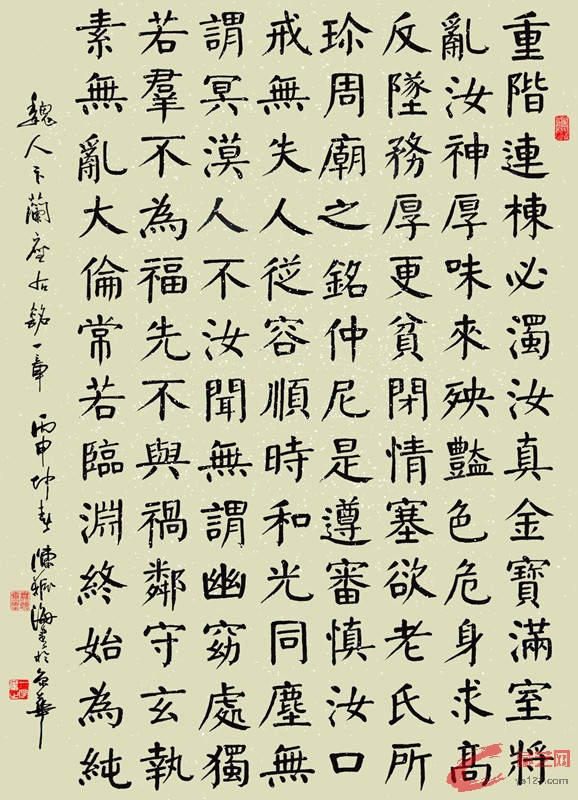 重階連棟必濁汝真金寶滿室將
亂汝神厚味來殃豔色危身求高
反墜務厚更貧閉情塞欲老氏所
珎周廟之銘仲尼是遵審慎汝口
戒無失人從容順時和光同塵無
謂冥漠人不汝聞無謂幽窈處獨
若羣不為福先不與禍鄰守玄執
素無亂大倫常若臨淵終始為純
魏人卞蘭座右銘一章 丙申仲春 陳海書於京華